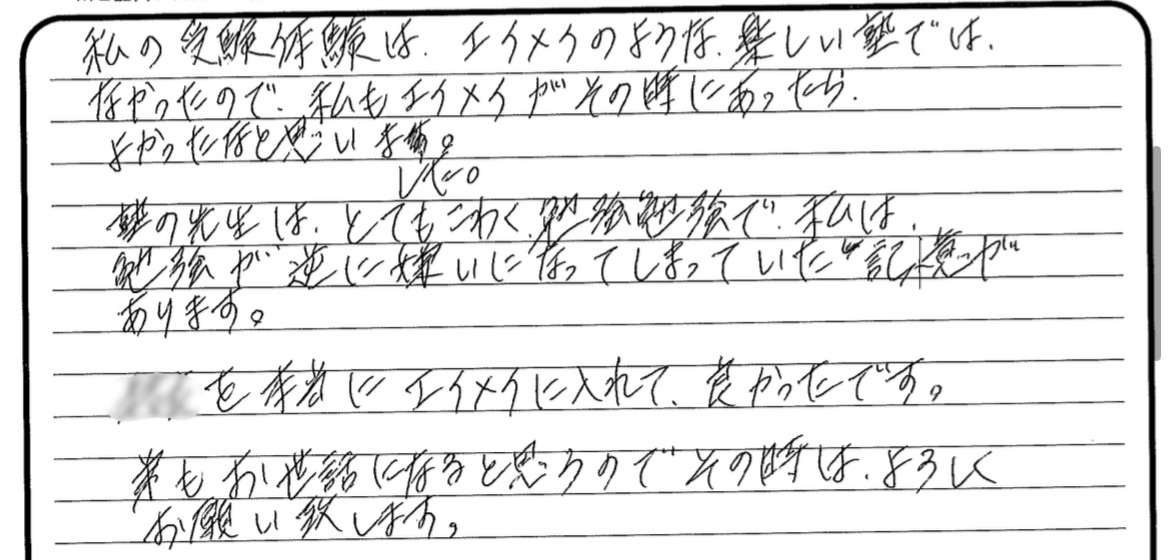 私の受験体験は、エイメイのような、楽しい塾では、
なかったので、私もエイメイがその時にあったら、
よかったなと思います。
した。
塾の先生は、とてもこわく、勉強勉強で、私は、
勉強が逆に嫌いになってしまっていた記憶が
あります。
を本当にエイメイに入れて、良かったです。
弟もお世話になると思うのでその時は、よろしく
お願い致します。